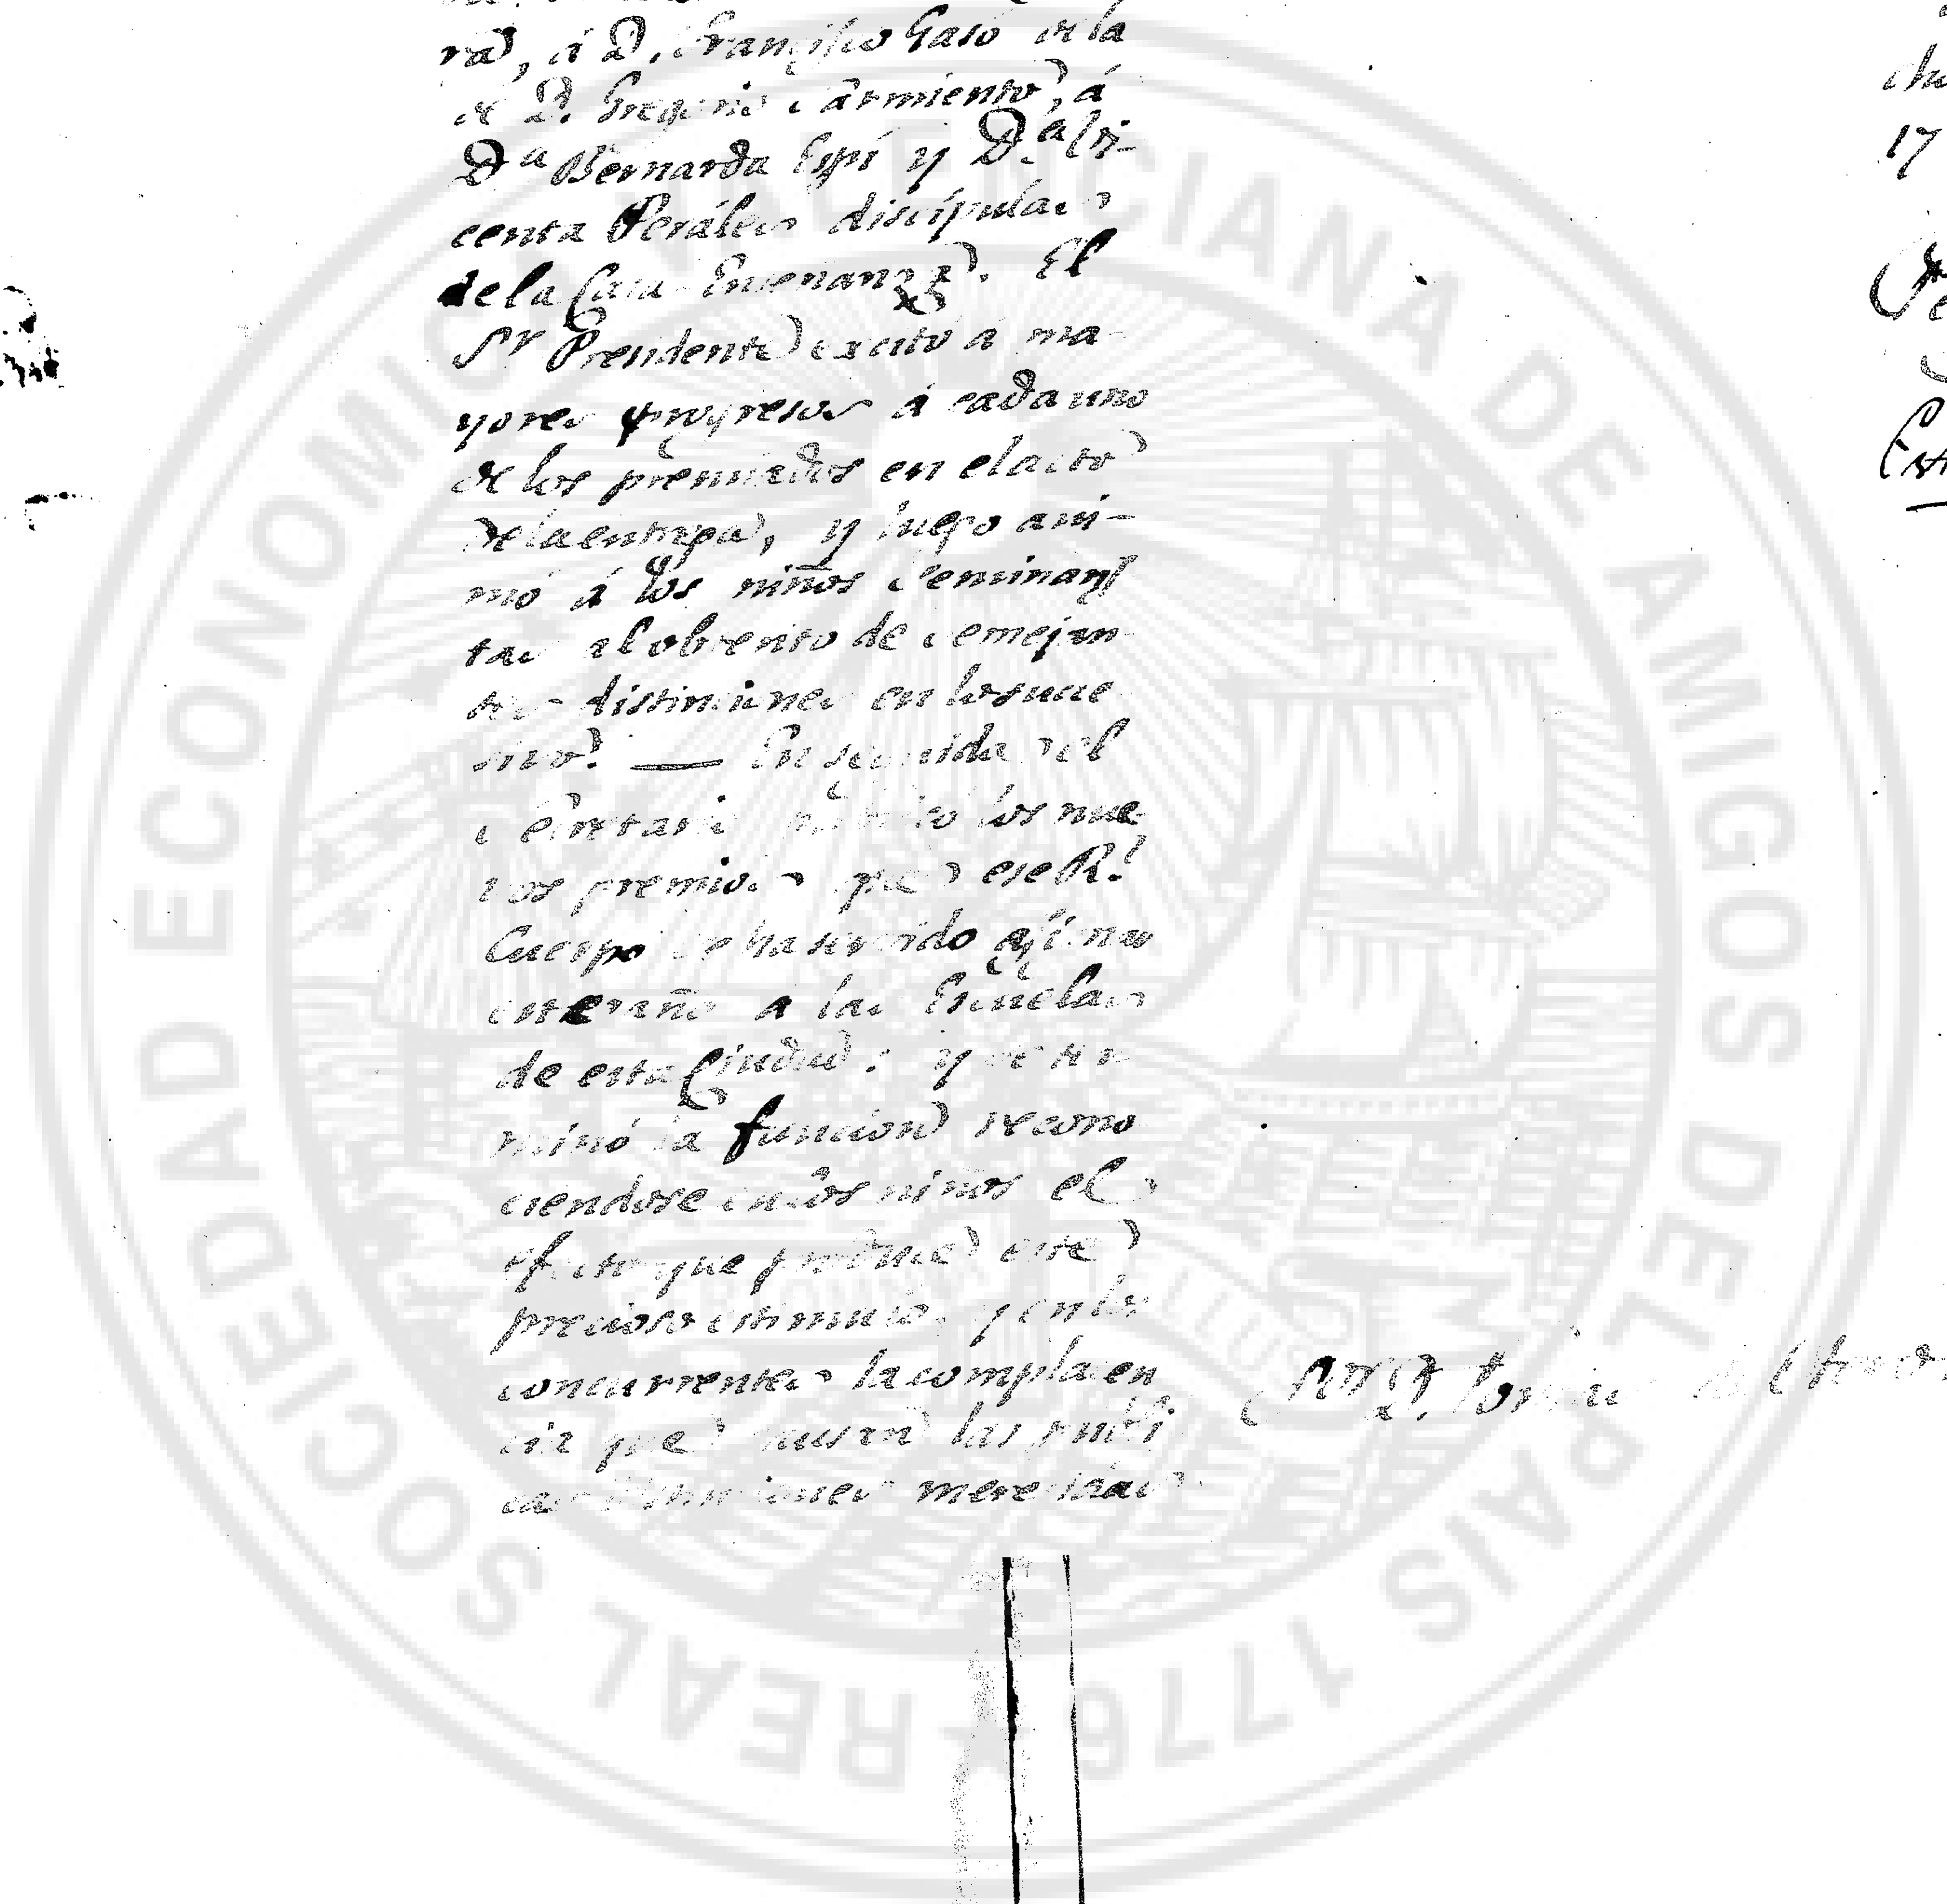 ra, á D. Francisco Gasó de la
de D. Gregorio Sarmiento, á
D.ª Bernarda Espí y D.ª Vi-
centa Peráles discípulas
de la Casa-Enseñanza. El
S.r Presidente excitó á ma-
yores progresos á cada uno
de los premiados en el acto
de la entrega, y luego ani-
mó á los niños Seminaris
tas al obtento de semejan-
tes distinciones en lo suce
sivo. — En seguida el
Secretario publicó los nue-
vos premios que ese R.l
Cuerpo se ha servido asignar
este año a las Escuelas
de esta Ciudad: y se ter
minó la funcion recono
ciendose en los niños el
efecto que produce este
precioso estimulo, y en los
concurrentes la complacen
cia que causan las públi
cas distinciones merecidas
17
SOCIEDAD ECONOMICA VALENCIANA DE AMIGOS DEL PAIS 1776 REAL